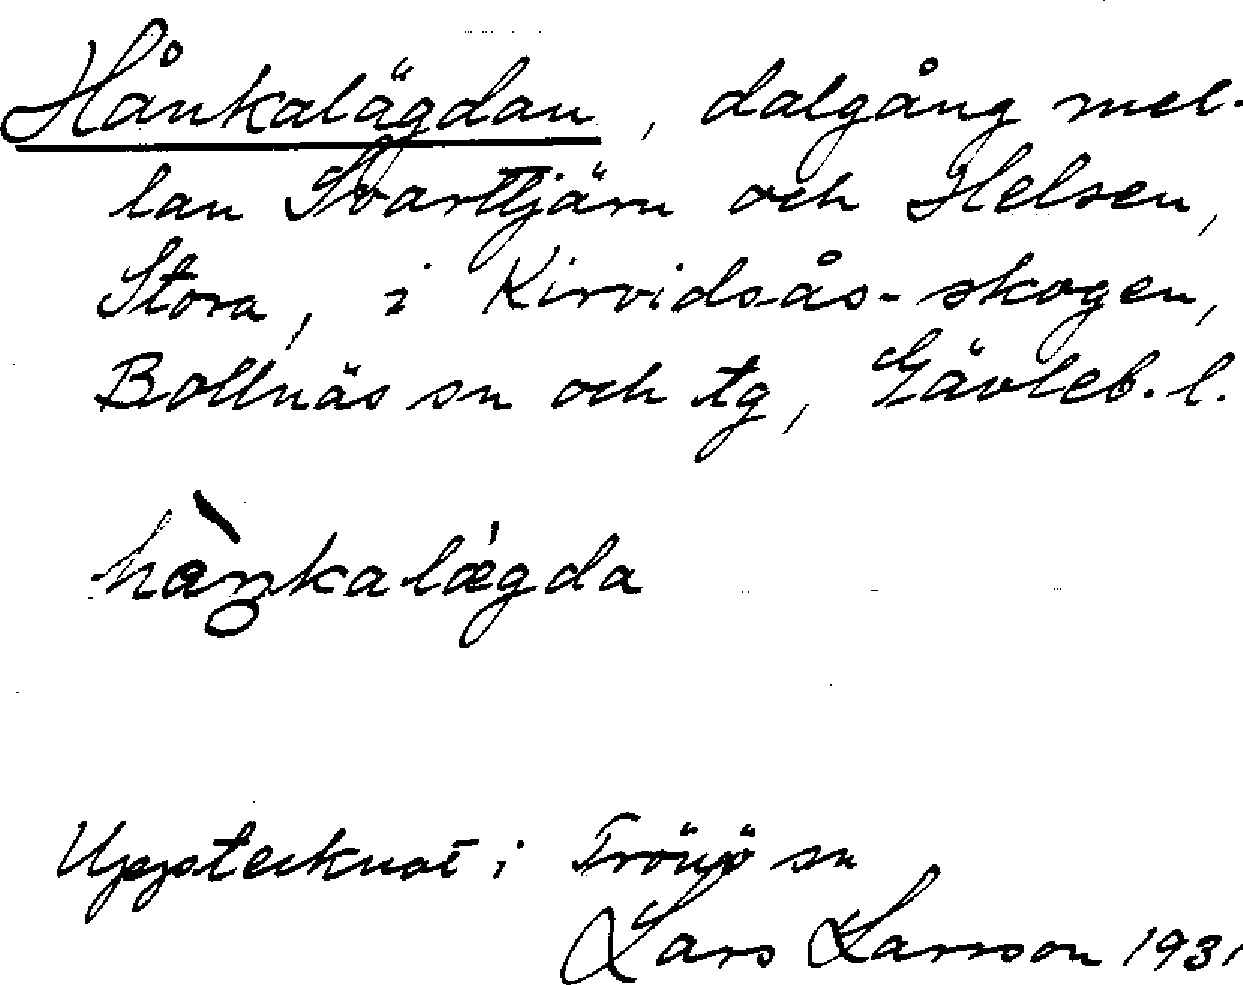 Hånkalägdan, dalgång mel-
lan Svarttjärn och Helsen,
Stora, i Kirvidsås-skogen,
Bollnäs sn och tg, Gävleb. l.
hàŋkalǽgda
Upptecknat i Trönö sn
Lars Larsson 1931